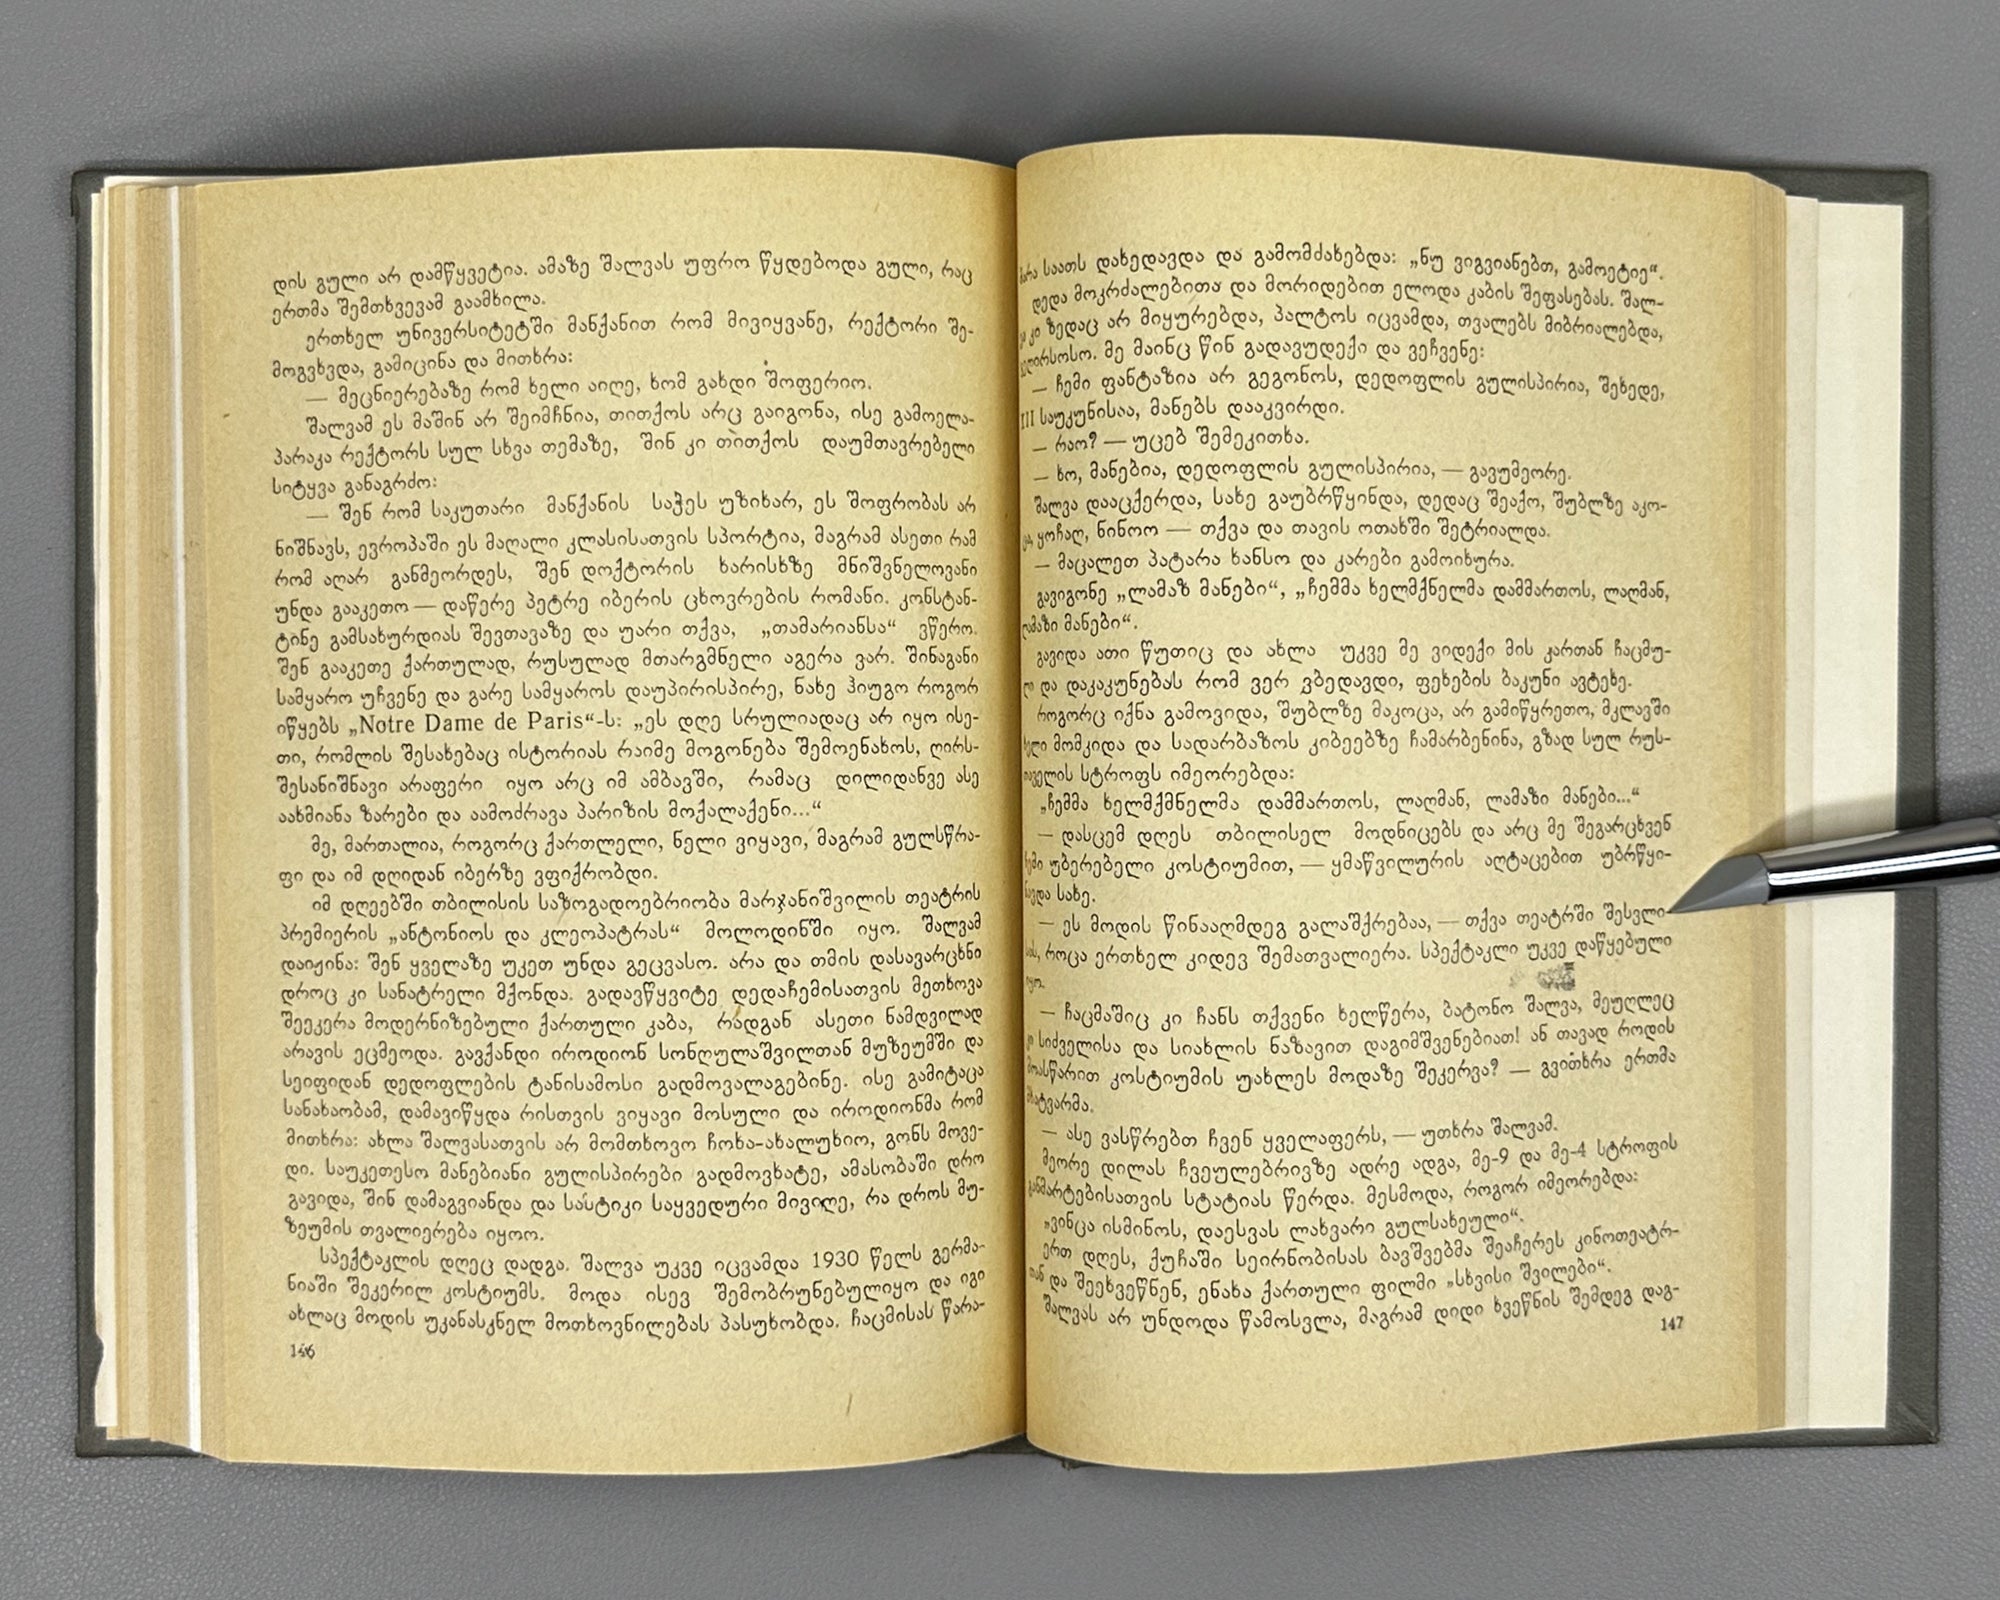 დის გული არ დამწყვეტია. ამაზე შალვას უფრო წყდებოდა გული, რაც
ერთმა შემთხვევამ გაამხილა.
ერთხელ უნივერსიტეტში მანქანით რომ მივიყვანე, რექტორი შე-
მოგვხვდა, გამიცინა და მითხრა:
— მეცნიერებაზე რომ ხელი აიღე, ხომ გახდი შოფერიო.
შალვამ ეს მაშინ არ შეიმჩნია, თითქოს არც გაიგონა, ისე გამოელა-
პარაკა რექტორს სულ სხვა თემაზე, შინ კი თითქოს დაუმთავრებელი
სიტყვა განაგრძო:
— შენ რომ საკუთარი მანქანის საჭეს უზიხარ, ეს შოფრობას არ
ნიშნავს, ევროპაში ეს მაღალი კლასისათვის სპორტია, მაგრამ ასეთი რამ
რომ აღარ განმეორდეს, შენ დოქტორის ხარისხზე მნიშვნელოვანი
უნდა გააკეთო — დაწერე პეტრე იბერის ცხოვრების რომანი. კონსტან-
ტინე გამსახურდიას შევთავაზე და უარი თქვა, „თამარიანსა“ ვწერო.
შენ გააკეთე ქართულად, რუსულად მთარგმნელი აგერა ვარ. შინაგანი
სამყარო უჩვენე და გარე სამყაროს დაუპირისპირე, ნახე ჰიუგო როგორ
იწყებს „Notre Dame de Paris“-ს: „ეს დღე სრულიადაც არ იყო ისე-
თი, რომლის შესახებაც ისტორიას რაიმე მოგონება შემოენახოს, ღირს-
შესანიშნავი არაფერი იყო არც იმ ამბავში, რამაც დილიდანვე ასე
აახმიანა ზარები და აამოძრავა პარიზის მოქალაქენი...“
მე, მართალია, როგორც ქართლელი, ნელი ვიყავი, მაგრამ გულსწრა-
ფი და იმ დღიდან იბერზე ვფიქრობდი.
იმ დღეებში თბილისის საზოგადოებრიობა მარჯანიშვილის თეატრის
პრემიერის „ანტონიოს და კლეოპატრას“ მოლოდინში იყო. შალვამ
დაიჟინა: შენ ყველაზე უკეთ უნდა გეცვასო. არა და თმის დასავარცხნი
დროც კი სანატრელი მქონდა. გადავწყვიტე დედაჩემისათვის მეთხოვა
შეეკერა მოდერნიზებული ქართული კაბა, რადგან ასეთი ნამდვილად
არავის ეცმეოდა. გავქანდი იროდიონ სონღულაშვილთან მუზეუმში და
სეიფიდან დედოფლების ტანისამოსი გადმოვალაგებინე. ისე გამიტაცა
სანახაობამ, დამავიწყდა რისთვის ვიყავი მოსული და იროდიონმა რომ
მითხრა: ახლა შალვასათვის არ მომთხოვო ჩოხა-ახალუხიო, გონს მოვე-
დი. საუკეთესო მანებიანი გულისპირები გადმოვხატე, ამასობაში დრო
გავიდა, შინ დამაგვიანდა და სასტიკი საყვედური მივიღე, რა დროს მუ-
ზეუმის თვალიერება იყოო.
სპექტაკლის დღეც დადგა. შალვა უკვე იცვამდა 1930 წელს გერმა-
ნიაში შეკერილ კოსტიუმს. მოდა ისევ შემობრუნებულიყო და იგი
ახლაც მოდის უკანასკნელ მოთხოვნილებას პასუხობდა. ჩაცმისას წარა-
146
საათს დახედავდა და გამომძახებდა: „ნუ ვიგვიანებთ, გამოეტიე“.
დედა მოკრძალებითა და მორიდებით ელოდა კაბის შეფასებას. შალ-
კი ზედაც არ მიყურებდა, პალტოს იცვამდა, თვალებს მიბრიალებდა,
მე მაინც წინ გადავუდექი და ვეჩვენე:
— ჩემი ფანტაზია არ გეგონოს, დედოფლის გულისპირია, შეხედე,
III საუკუნისაა, მანებს დააკვირდი.
— რაო? — უცებ შემეკითხა.
— ხო, მანებია, დედოფლის გულისპირია, — გავუმეორე.
შალვა დააცქერდა, სახე გაუბრწყინდა, დედაც შეაქო, შუბლზე აკო-
ყოჩაღ, ნინოო — თქვა და თავის ოთახში შეტრიალდა.
— მაცალეთ პატარა ხანსო და კარები გამოიხურა.
გავიგონე „ლამაზ მანები“, „ჩემმა ხელმქნელმა დამმართოს, ლაღმან,
ლამაზი მანები“.
გავიდა ათი წუთიც და ახლა უკვე მე ვიდექი მის კართან ჩაცმუ-
ლი და დაკაკუნებას რომ ვერ ვბედავდი, ფეხების ბაკუნი ავტეხე.
როგორც იქნა გამოვიდა, შუბლზე მაკოცა, არ გამიწყრეთო, მკლავში
ხელი მომკიდა და სადარბაზოს კიბეებზე ჩამარბენინა, გზად სულ რუს-
თაველის სტროფს იმეორებდა:
„ჩემმა ხელმქმნელმა დამმართოს, ლაღმან, ლამაზი მანები...“
— დასცემ დღეს თბილისელ მოდნიცებს და არც მე შეგარცხვენ
ჩემი უბერებელი კოსტიუმით, — ყმაწვილურის აღტაცებით უბრწყი-
ნავდა სახე.
— ეს მოდის წინააღმდეგ გალაშქრებაა, — თქვა თეატრში შესვლი-
სას, როცა ერთხელ კიდევ შემათვალიერა. სპექტაკლი უკვე დაწყებული
იყო.
— ჩაცმაშიც კი ჩანს თქვენი ხელწერა, ბატონო შალვა, მეუღლეც
კი სიძველისა და სიახლის ნაზავით დაგიმშვენებიათ! ან თავად როდის
მოასწარით კოსტიუმის უახლეს მოდაზე შეკერვა? — გვითხრა ერთმა
მხატვარმა.
— ასე ვასწრებთ ჩვენ ყველაფერს, — უთხრა შალვამ.
მეორე დილას ჩვეულებრივზე ადრე ადგა, მე-9 და მე-4 სტროფის
განმარტებისათვის სტატიას წერდა. მესმოდა, როგორ იმეორებდა:
„ვინცა ისმინოს, დაესვას ლახვარი გულსახეული“.
ერთ დღეს, ქუჩაში სეირნობისას ბავშვებმა შეაჩერეს კინოთეატრ-
თან და შეეხვეწნენ, ენახა ქართული ფილმი „სხვისი შვილები“.
შალვას არ უნდოდა წამოსვლა, მაგრამ დიდი ხვეწნის შემდეგ დაგ-
147